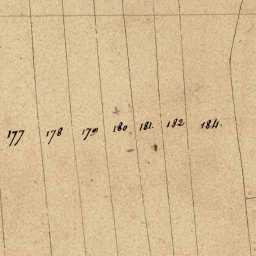 177 178 179 180 181. 182 184.